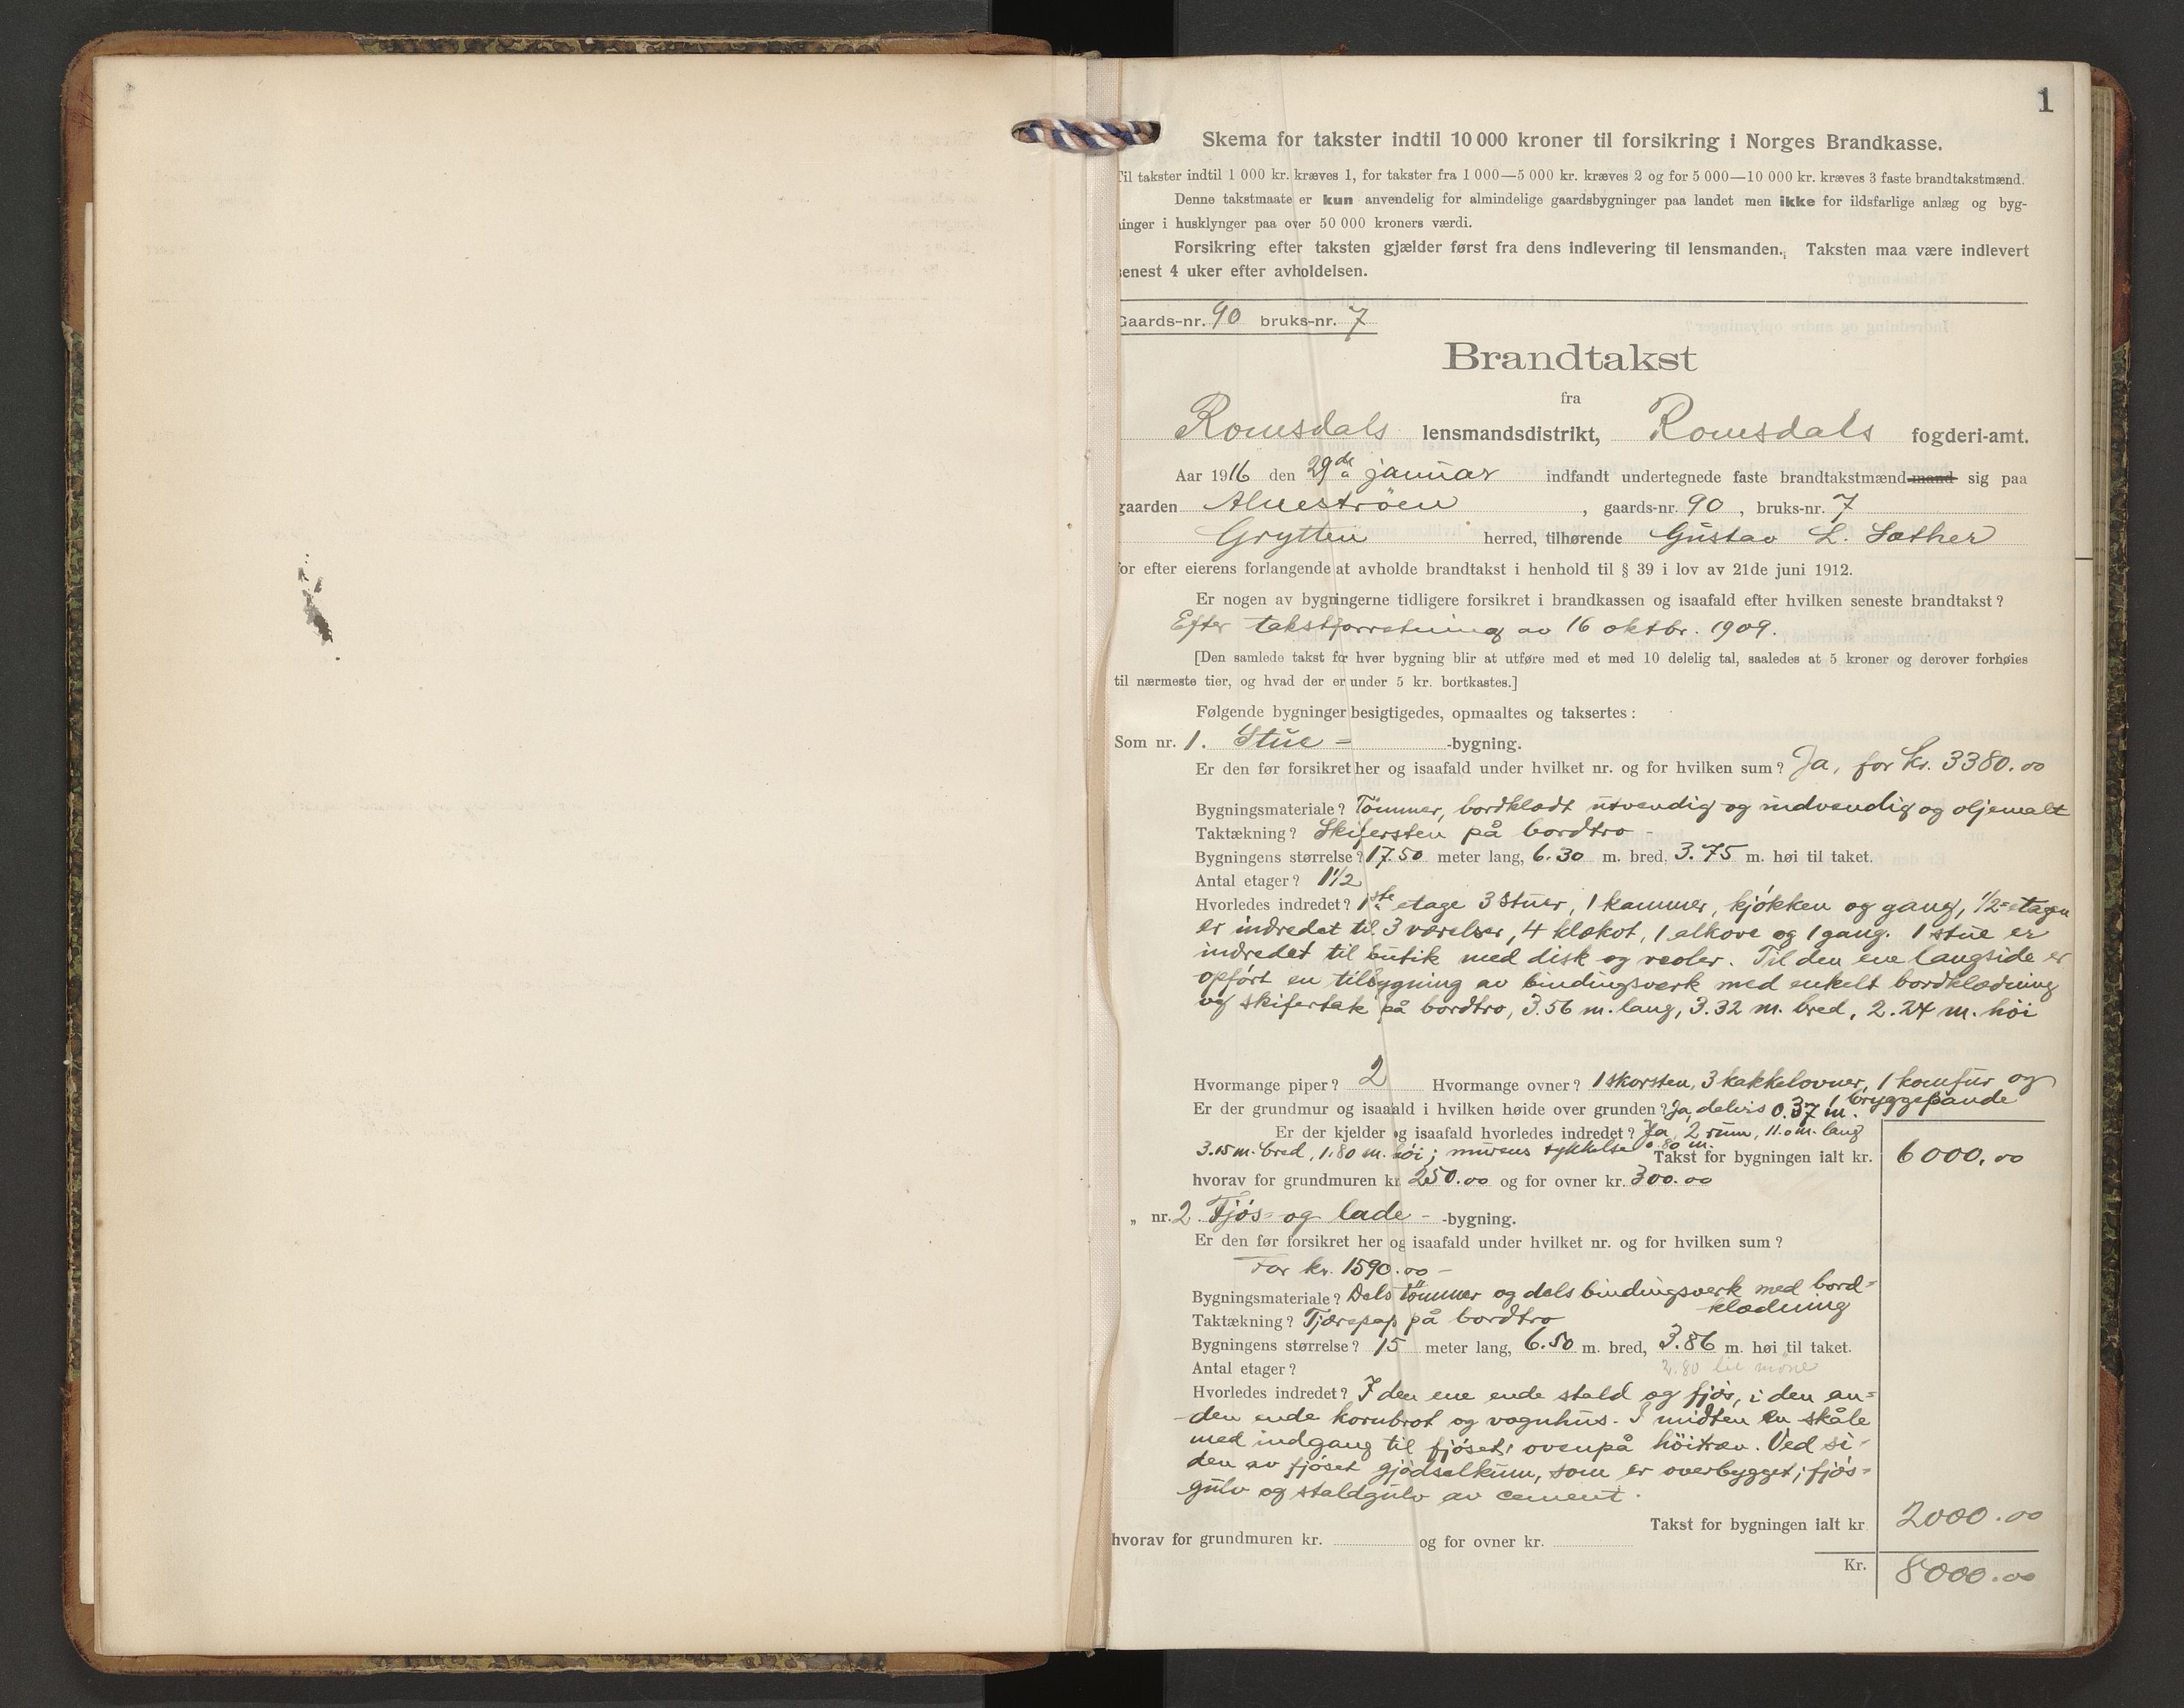 1
Skema for takster indtil 10 000 kroner til forsikring i Norges Brandkasse.
Til takster indtil 1 000 kr. kræves 1, for takster fra 1 000—5 000 kr. kræves 2 og for 5 000—10 000 kr. kræves 3 faste brandtakstmænd.
Denne takstmaate er kun anvendelig for almindelige gaardsbygninger paa landet men ikke for ildsfarlige anlæg og byg-
ninger i husklynger paa over 50 000 kroners værdi.
Forsikring efter taksten gjælder først fra dens indlevering til lensmanden. Taksten maa være indlevert
senest 4 uker efter avholdelsen.
Gaards-nr. 90 bruks-nr. 7
Brandtakst
fra
Romsdals lensmandsdistrikt, Romsdals fogderi-amt.
Aar 1916 den 29de januar indfandt undertegnede faste brandtakstmænd-mand sig paa
gaarden Alnestrøen, gaards-nr. 90, bruks-nr. 7
Grytten herred, tilhørende Gustav L. Sæther
for efter eierens forlangende at avholde brandtakst i henhold til § 39 i lov av 21de juni 1912.
Er nogen av bygningerne tidligere forsikret i brandkassen og isaafald efter hvilken seneste brandtakst?
Efter takstforretning av 16 oktbr. 1909.
[Den samlede takst for hver bygning blir at utføre med et med 10 delelig tal, saaledes at 5 kroner og derover forhøies
til nærmeste tier, og hvad der er under 5 kr. bortkastes.]
Følgende bygninger besigtigedes, opmaaltes og taksertes:
Som nr. 1. Stue= -bygning.
Er den før forsikret her og isaafald under hvilket nr. og for hvilken sum? Ja, for kr. 3380.00
Bygningsmateriale? Tömmer, bordklædt utvendig og indvendig og oljemalt
Taktækning? Skifersten på bordtro
Bygningens størrelse? 17.50 meter lang, 6.30 m. bred, 3.75 m. høi til taket.
Antal etager? 1 1/2
Hvorledes indredet? 1ste etage 3 stuer, 1 kammer, kjökken og gang, 1/2=etagen
er indredet til 3 værelser, 4 klækot, 1 alkove og 1 gang. 1 stue er
indredet til butik med disk og reoler. Til den ene langside er
opført en tilbygning av bindingsverk med enkelt bordklædning
og skifertak på bordtro, 3.56 m. lang, 3.32 m. bred, 2.24 m. höi
Hvormange piper? 2 Hvormange ovner? 1 skorsten, 3 kakkelovner, 1 komfur og
1 bryggepande
Er der grundmur og isaafald i hvilken høide over grunden? Ja, delvis 0.37 m.
Er der kjelder og isaafald hvorledes indredet? Ja, 2 rum, 11.0 m. lang
3.15 m. bred, 1.80 m. höi; murens tykkelse 0.80 m. Takst for bygningen ialt kr. 6000.00
hvorav for grundmuren kr. 250.00 og for ovner kr. 300.00
„ nr. 2 Fjös= og lade- -bygning.
Er den før forsikret her og isaafald under hvilket nr. og for hvilken sum?
For kr. 1590.00 –
Bygningsmateriale? Dels tömmer og dels bindingsverk med bord=
klædning
Taktækning? Tjærepap på bordtro
Bygningens størrelse? 15 meter lang, 6.50 m. bred, 3.86 m. høi til taket.
Antal etager? 2.80 til möne
Hvorledes indredet? I den ene ende stald og fjös, i den an=
den ende kornbrot og vognhus. I midten en skåle
med indgang til fjöset, ovenpå höitrev. Ved si-
den av fjöset gjödselkum, som er overbygget; fjös=
gulv og staldgulv av cement.
Takst for bygningen ialt kr. 2000.00
hvorav for grundmuren kr. og for ovner kr.
Kr. 8000.00